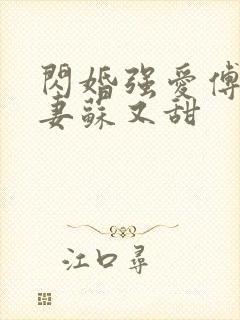 閃婚強愛傅
妻蘇又甜
江口尋